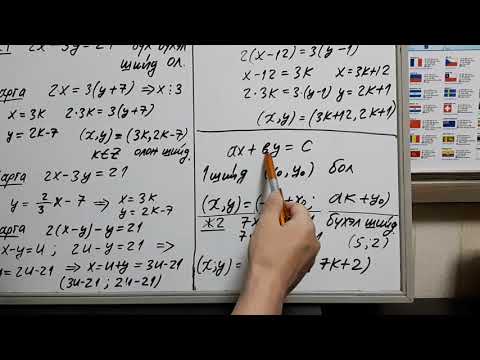 2x-3y=21 бүх бүхэл
шийд ол.
арга 2x = 3(y+7) => x⋮3
x = 3k 2·3k = 3(y+7)
y = 2k-7 (x,y) = (3k, 2k-7)
k∈Z олон шийд
арга 2x-3y = 21
y = 2/3 x - 7 => x = 3k
y = 2k-7
арга 2(x-y)-y = 21
x-y=u, 2u-y=21 =>
y = 2u-21 => x = u+y = 3u-21
(3u-21; 2u-21)
2(x-12) = 3(y-1)
x-12 = 3k x = 3k+12
2·3k = 3(y-1) y = 2k+1
(x,y) = (3k+12, 2k+1)
ax + by = c
1 шийд y₀) бол
(x,y) = + x₀; ak + y₀)
Ж2 7 бүхэл шийд
7 (5;2)
(x;y) = 7k+2)